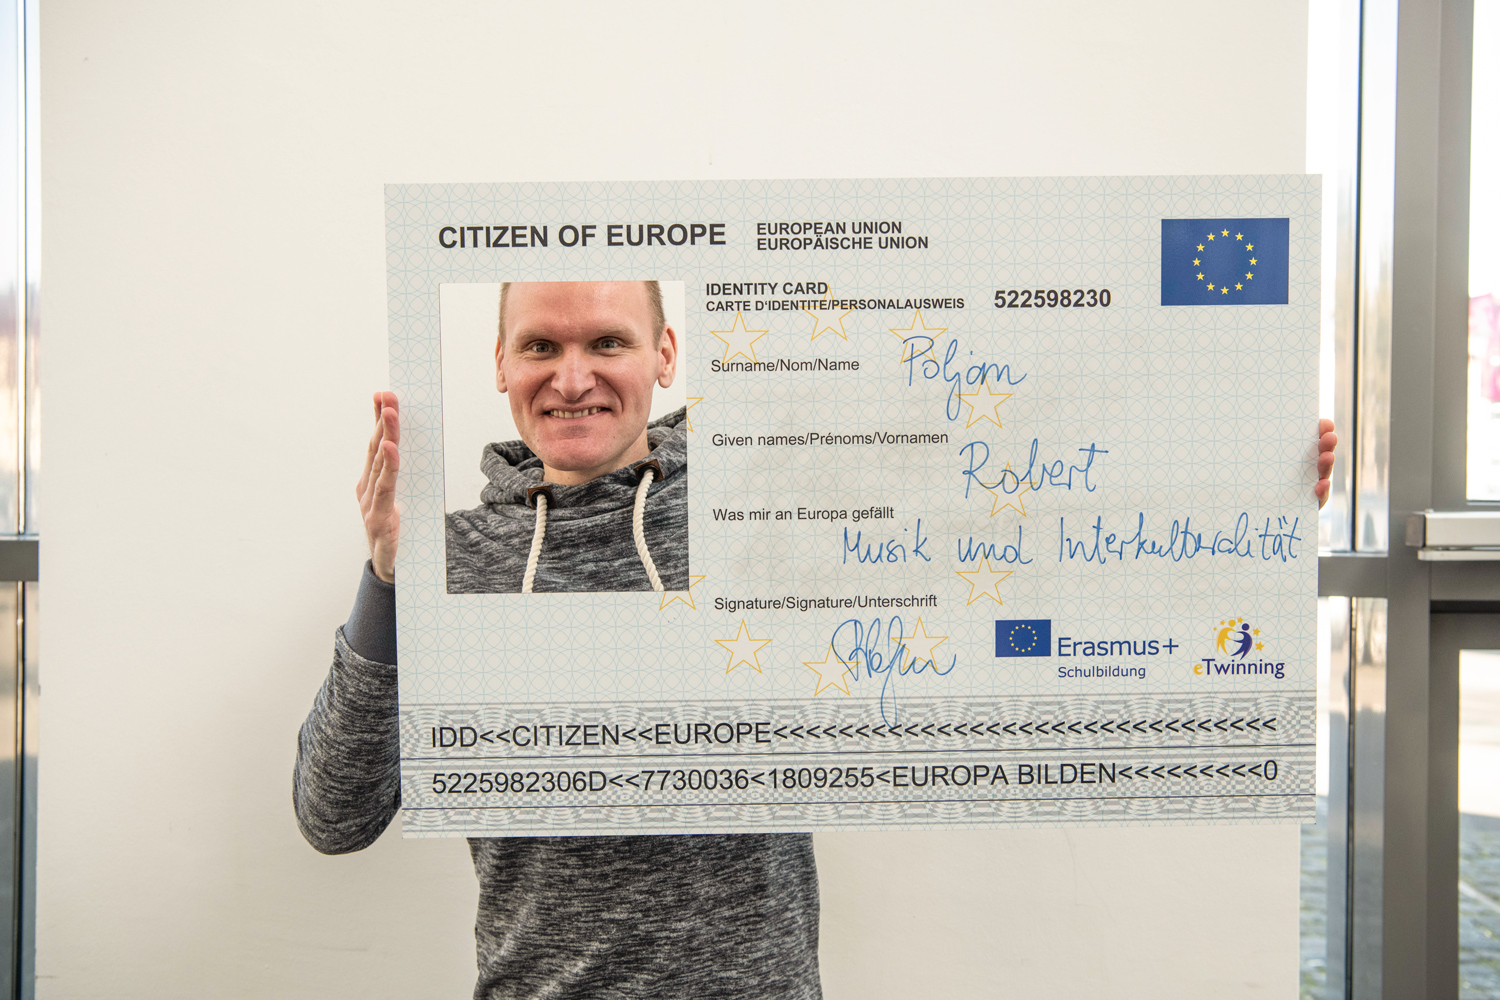 CITIZEN OF EUROPE
EUROPEAN UNION
EUROPÄISCHE UNION
IDENTITY CARD
CARTE D'IDENTITE/PERSONALAUSWEIS
522598230
Surname/Nom/Name
Poljan
Given names/Prénoms/Vornamen
Robert
Was mir an Europa gefällt
Musik und Interkulturalität
Signature/Signature/Unterschrift
Erasmus+
Schulbildung
eTwinning
IDD<<CITIZEN<<EUROPE<<<<<<<<<<<<<<<<<<<<<<<<<<<<
5225982306D<<7730036<1809255<EUROPA BILDEN<<<<<<<<<0